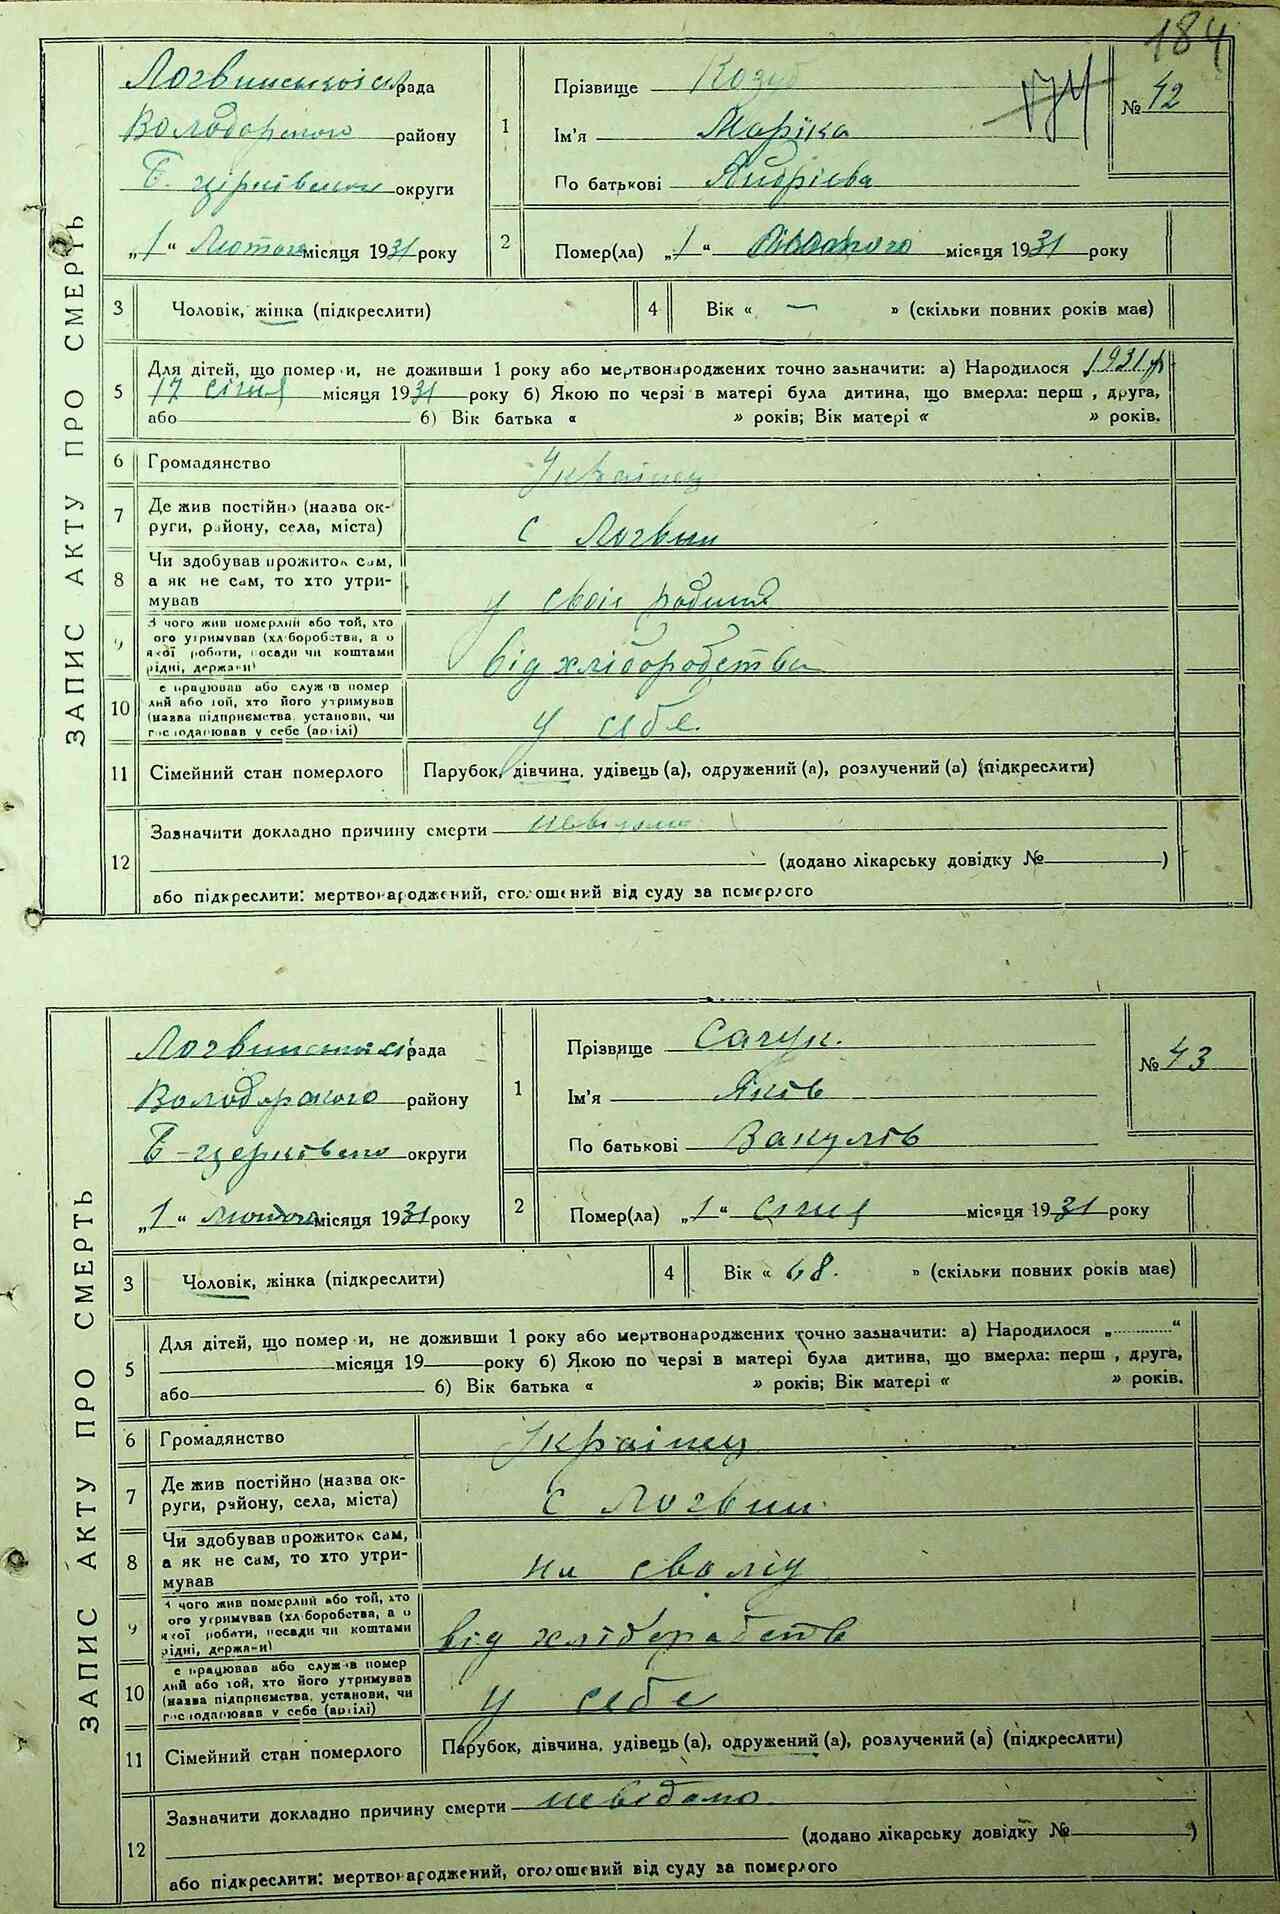 184
174
ЗАПИС АКТУ ПРО СМЕРТЬ
Логвинської с/рада
Володарського району
Б. церківської округи
„1“ Лютого місяця 1931 року
1
Прізвище Козуб
Ім'я Маріка
По батькові Андрієва
№ 42
2
Помер(ла) „1“ місяця 1931 року
3 Чоловік, жінка (підкреслити)
4 Вік « — » (скільки повних років має)
5
Для дітей, що помер и, не доживши 1 року або мертвонароджених точно зазначити: а) Народилося 1931 р
17 січня місяця 1931 року б) Якою по черзі в матері була дитина, що вмерла: перш , друга,
або б) Вік батька « » років; Вік матері « » років.
6 Громадянство Українец
7 Де жив постійно (назва ок-
руги, району, села, міста)
с Логвин
8 Чи здобував прожиток сам,
а як не сам, то хто утри-
мував
у своїй родині
9 З чого жив померлий або той, хто
ого утримував (хл боробства, а о
якої роботи, посади чи коштами
рідні, держави)
від хліборобства
10 е працював або служ в помер
лий або той, хто його утримував
(назва підприємства, установи, чи
господарював у себе (артілі)
у себе
11 Сімейний стан померлого Парубок, дівчина, удівець (а), одружений (а), розлучений (а) (підкреслити)
12
Зазначити докладно причину смерти невідомо
(додано лікарську довідку № )
або підкреслити: мертвонароджений, оголошений від суду за померлого
ЗАПИС АКТУ ПРО СМЕРТЬ
Логвинської с/рада
Володарського району
Б-церківсько округи
„1“ лютого місяця 1931 року
1
Прізвище Сачук.
Ім'я Яків
По батькові Вакулів
№ 43
2
Помер(ла) „1“ січня місяця 1931 року
3 Чоловік, жінка (підкреслити)
4 Вік « 68. » (скільки повних років має)
5
Для дітей, що помер и, не доживши 1 року або мертвонароджених точно зазначити: а) Народилося „ “
місяця 19 року б) Якою по черзі в матері була дитина, що вмерла: перш , друга,
або б) Вік батька « » років; Вік матері « » років.
6 Громадянство Українец
7 Де жив постійно (назва ок-
руги, району, села, міста)
с Логвин
8 Чи здобував прожиток сам,
а як не сам, то хто утри-
мував
на своліу
9 чого жив померлий або той, хто
ого утримував (хл боробства, а о
якої роботи, посади чи коштами
рідні, держави)
від хліборабств
10 е працював або служ в помер
лий або той, хто його утримував
(назва підприємства, установи, чи
господарював у себе (артілі)
у себе
11 Сімейний стан померлого Парубок, дівчина, удівець (а), одружений (а), розлучений (а) (підкреслити)
12
Зазначити докладно причину смерти невідомо
(додано лікарську довідку № )
або підкреслити: мертвонароджений, оголошений від суду за померлого